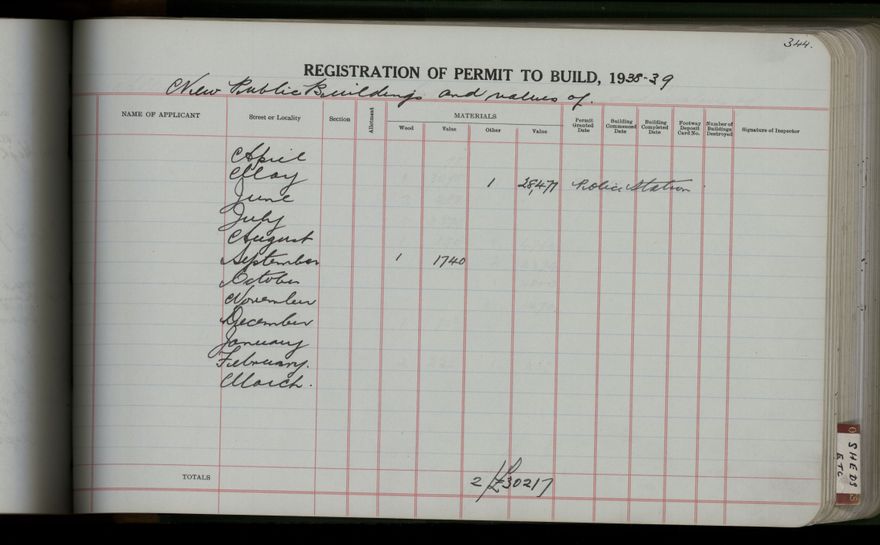 344.
REGISTRATION OF PERMIT TO BUILD, 1938-39
New Public Buildings and values of.
NAME OF APPLICANT Street or Locality Section Allotment MATERIALS Wood Value Other Value Permit Granted Date Building Commenced Date Building Completed Date Footway Deposit Card No. Number of Buildings Destroyed Signature of Inspector
April
May 1 28,477 Police Station
June
July
August
September 1 1740
October
November
December
January
February.
March.
TOTALS 2/£30217
SHEDS
ETC